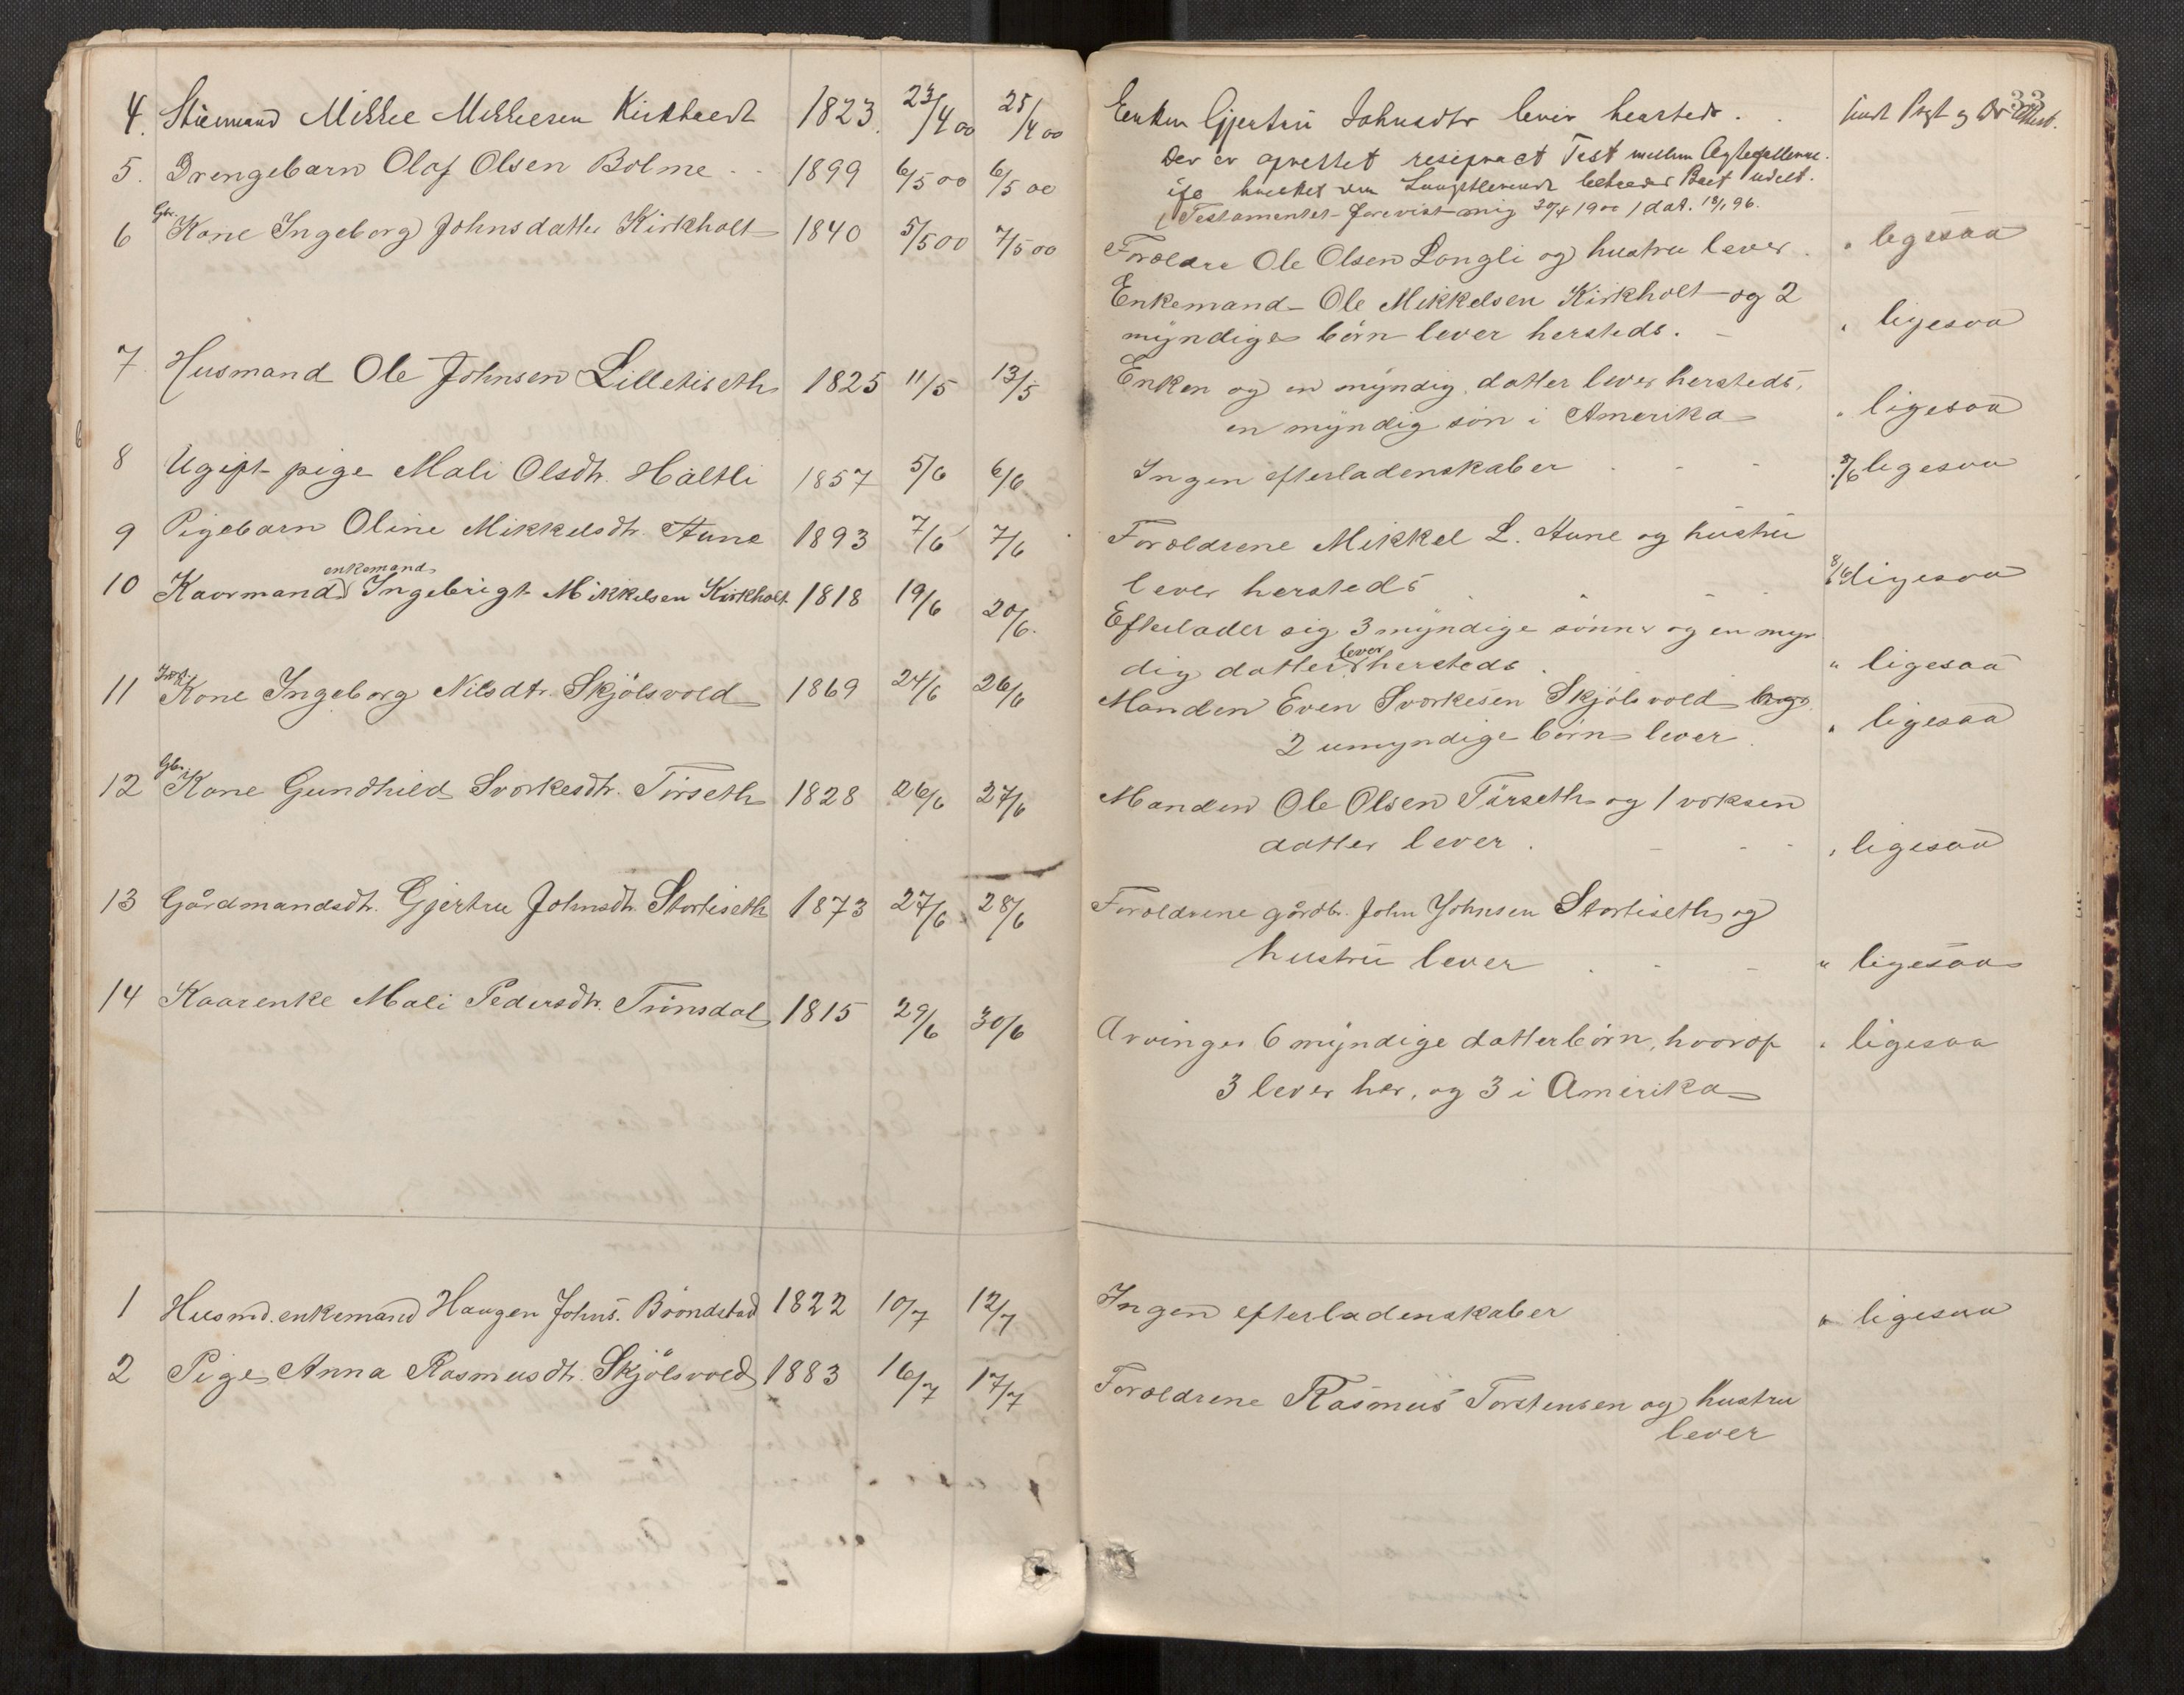 33
4. Mikkel Mikkelsen Kirkholt 1823. 23/4 00 25/4 00
5. Drengebarn Olaf Olsen Bolme 1899 6/5 00 6/5 00
6 Gbr. Kone Ingeborg Johnsdatter Kirkholt 1840 5/5 00 7/5 00
7. Husmand Ole Johnsen Lilletiseth 1825 11/5 13/5
8 Ugift pige Mali Olsdtr. Hältli 1857 5/6 6/6
9 Pigebarn Oline Mikkelsdtr. Aune 1893 7/6 7/6
10 Kaarmand enkemand Ingebrigt Mikkelsen Kirkholt 1818 19/6 20/6.
11 Kone Ingeborg Nilsdtr. Skjölsvold 1869 24/6 26/6
12 Gbr. Kone Gundhild Svorkesdtr. Törseth 1828 26/6 27/6
13 Gårdmandsdtr. Gjertru Johnsdtr. Stortiseth 1873 27/6 28/6
14 Kaarenke Mali Pedersdtr. Trönsdal 1815 29/6 30/6
1 Husmd. enkemand Haagen Johns. Bröndstad 1822 10/7 12/7
2 Pige Anna Rasmusdtr. Skjölsvold 1883 16/7 17/7
Enken Gjertru Johnsdtr lever hersteds.
Der er oprettet resiproct Test mellem Ægtefellerne.
ifø hvilket den Længstlevende beholder Boet udelt.
Testamentet forevist mig 30/4 1900 / dat. 18/1 96.
Foroldre Ole Olsen Longli og hustru lever. " ligesaa
Enkemand Ole Mikkelsen Kirkholt og 2
myndige börn lever hersteds. " ligesaa
Enken og en myndig datter lever hersteds,
en myndig sön i Amerika " ligesaa
Ingen efterladenskaber 8/6 ligesaa
Foroldrene Mikkel L. Aune og hustru
lever hersteds 8/6 ligesaa
Efterlader sig 3 myndige sönner og en myn
dig datter lever hersteds " ligesaa
Manden Even Svorkesen Skjölsvold og
2 umyndige börn lever. " ligesaa
Manden Ole Olsen Törseth og 1 voksen
datter lever. " ligesaa
Foroldrene gårdbr. John Johnsen Stortiseth og
hustru lever " ligesaa
Arvinger 6 myndige datterbörn, hvoraf " ligesaa
3 lever her, og 3 i Amerika
Ingen efterladenskaber " ligesaa
Foroldrene Rasmus Torstensen og hustru
lever